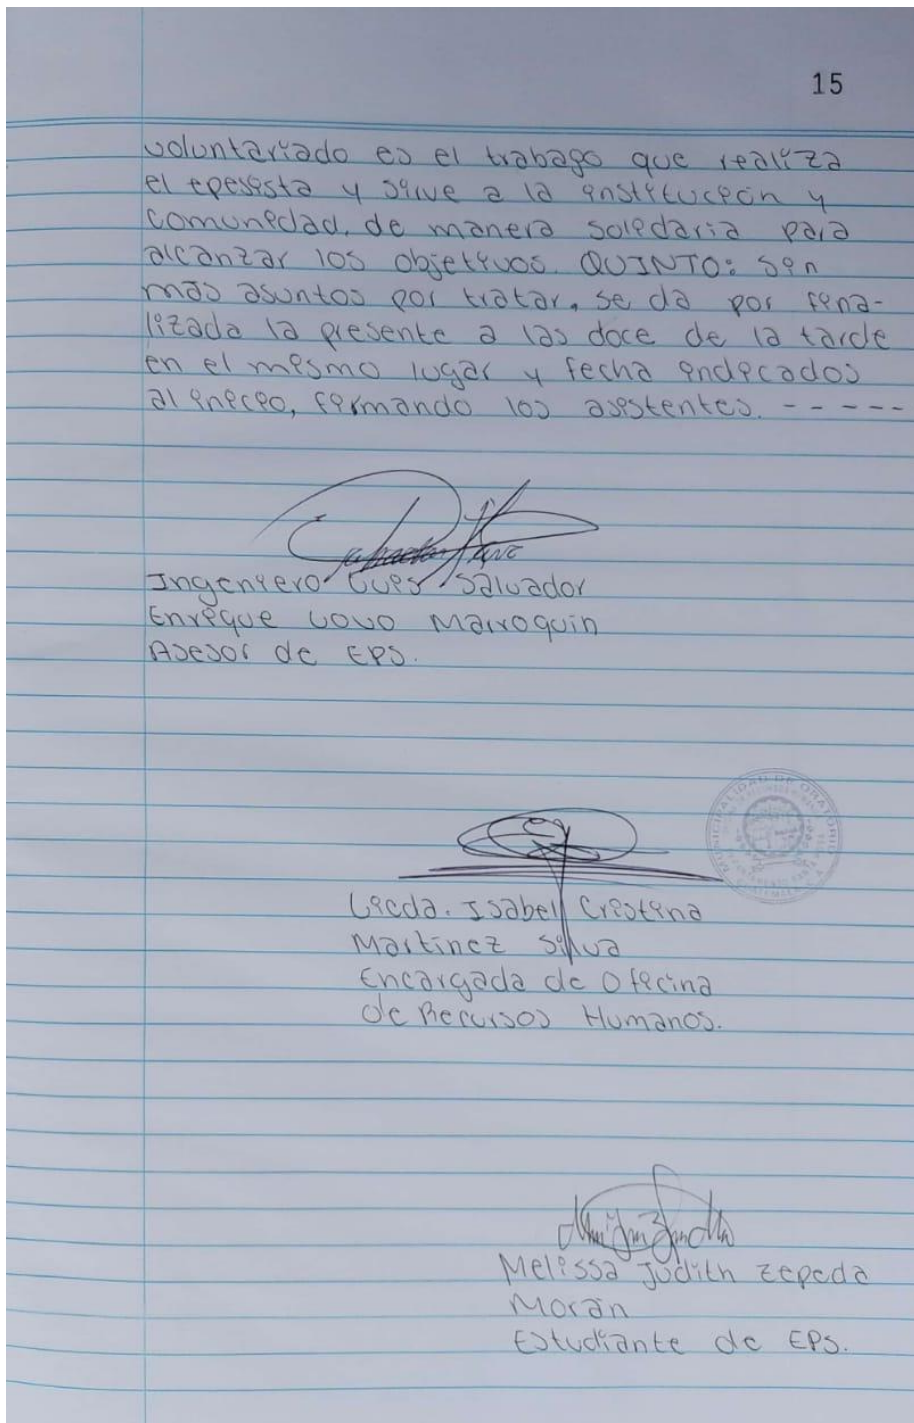 15
voluntariado es el trabajo que realiza
el epesista y sirve a la institución y
comunidad, de manera solidaria para
alcanzar los objetivos. QUINTO: sin
más asuntos por tratar, se da por fina-
lizada la presente a las doce de la tarde
en el mismo lugar y fecha indicados
al inicio, firmando los asistentes. - - - - -
Ingeniero Luis Salvador
Enrique Marroquin
Asesor de EPS.
MUNICIPALIDAD DE ORATORIO
Licda. Isabel Cristina
Martinez Silva
Encargada de Oficina
de Recursos Humanos.
Melissa Judith Zepeda
Morán
Estudiante de EPS.